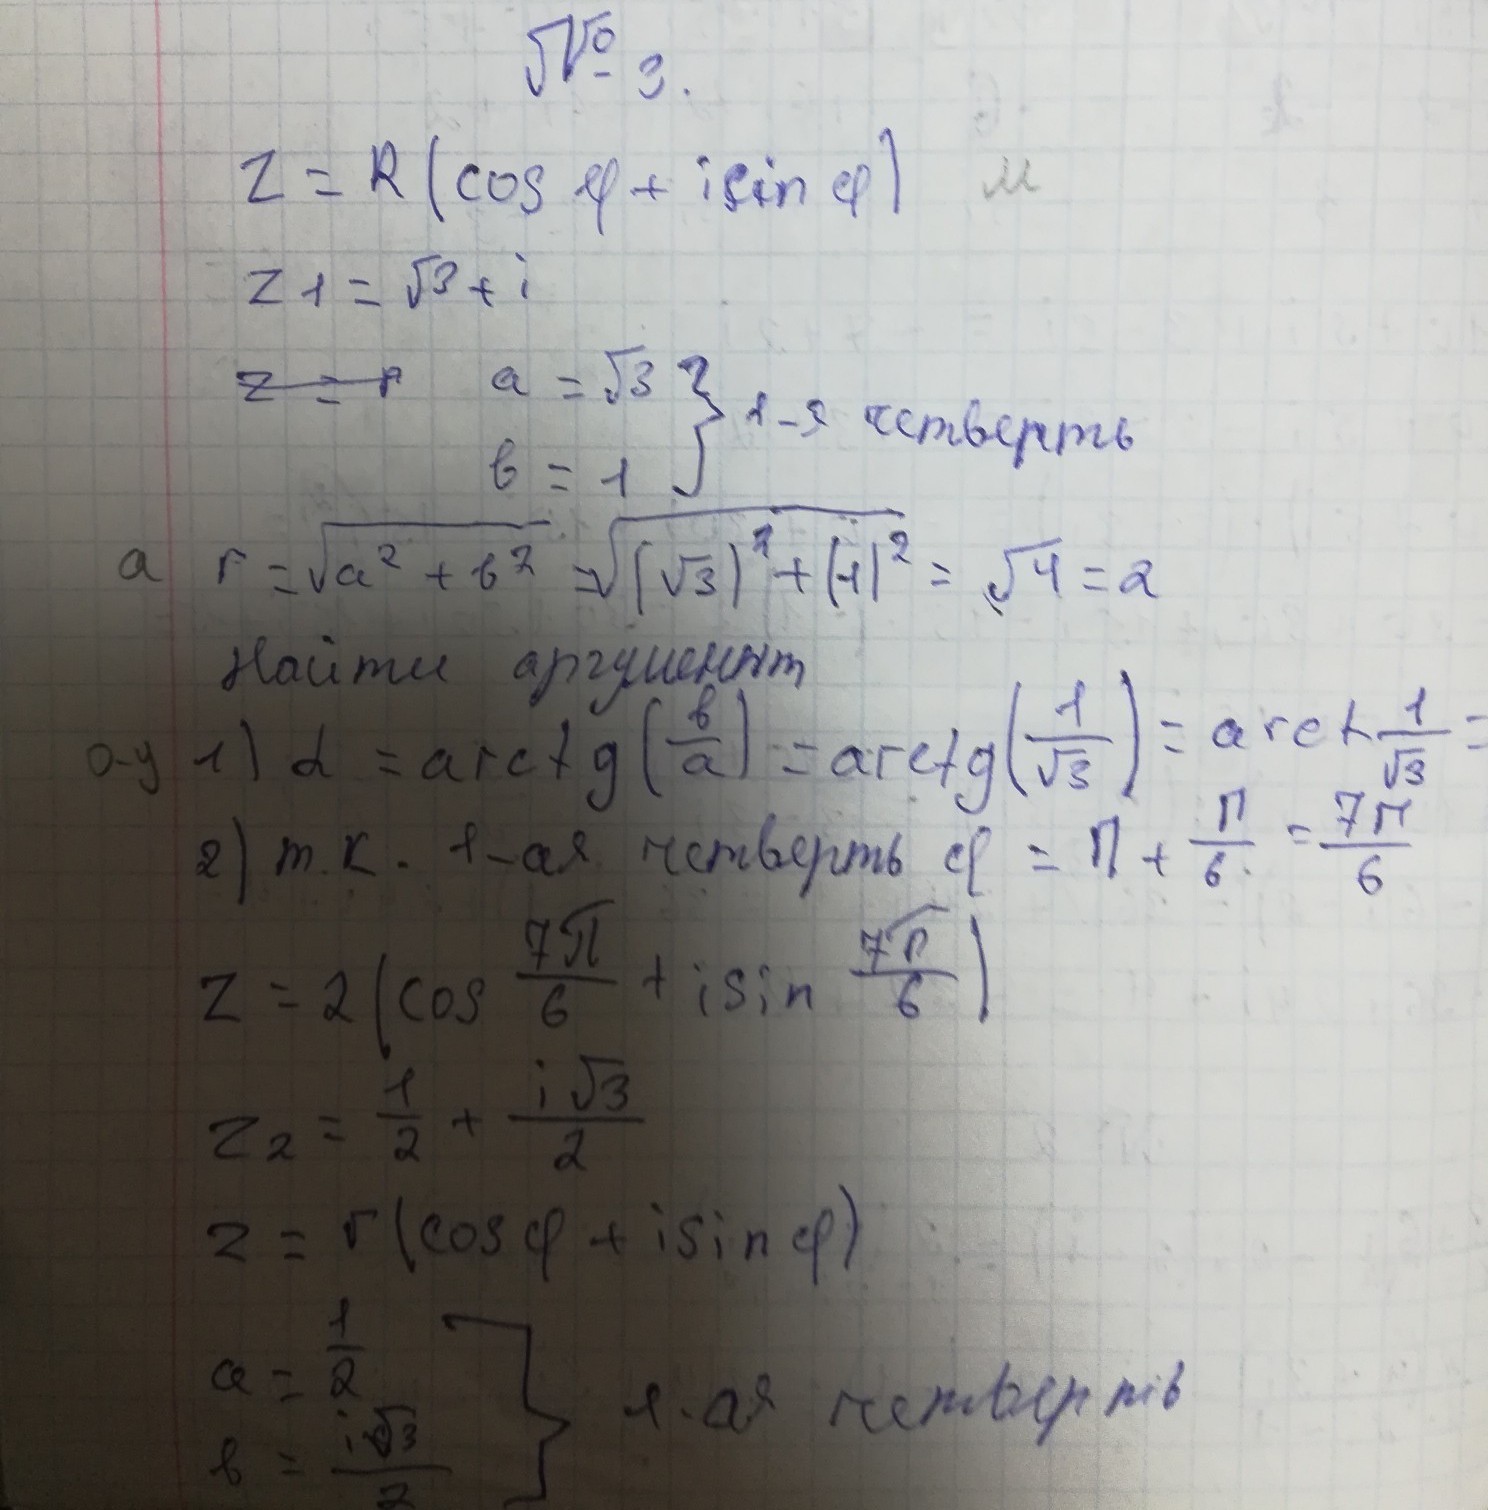 № 3.
Z = R (cos φ + i sin φ)
Z1 = √3 + i
z = r a = √3 } 1-я четверть
в = 1
r = √a² + в² = √(√3)² + (1)² = √4 = 2
Найти аргумент
1) α = arctg (в/а) = arctg (1/√3) = arct 1/√3 =
2) т.к. 1-ая четверть φ = П + П/6 = 7П/6
Z = 2 (cos 7П/6 + i sin 7П/6)
Z2 = 1/2 + i√3/2
z = r (cos φ + i sin φ)
a = 1/2 } 1-ая четверть
в = i√3/2